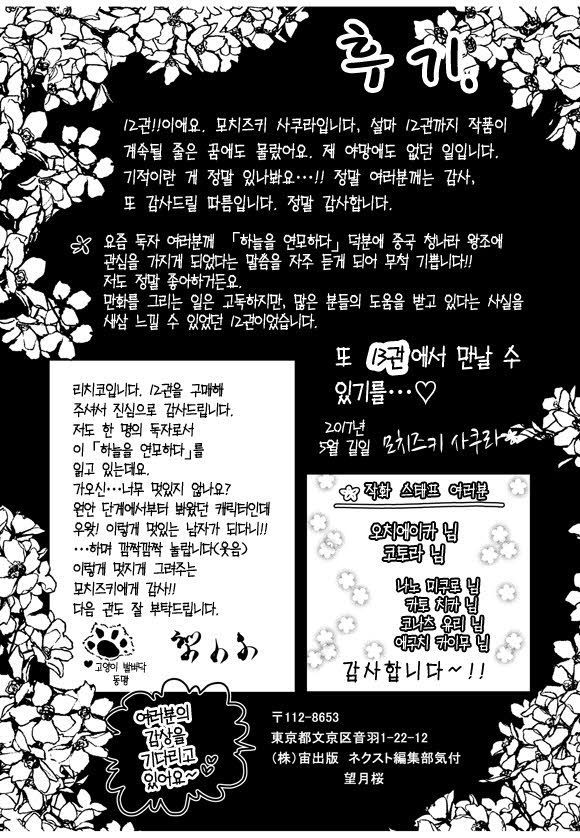 후기.
12권!!이에요. 모치즈키 사쿠라입니다, 설마 12권까지 작품이
계속될 줄은 꿈에도 몰랐어요. 제 야망에도 없던 일입니다.
기적이란 게 정말 있나봐요…!! 정말 여러분께는 감사,
또 감사드릴 따름입니다. 정말 감사합니다.
요즘 독자 여러분께 「하늘을 연모하다」 덕분에 중국 청나라 왕조에
관심을 가지게 되었다는 말씀을 자주 듣게 되어 무척 기쁩니다!!
저도 정말 좋아하거든요.
만화를 그리는 일은 고독하지만, 많은 분들의 도움을 받고 있다는 사실을
새삼 느낄 수 있었던 12권이었습니다.
또 13권에서 만날 수
있기를…♡
2017년
5월 길일 모치즈키 사쿠라
리치코입니다. 12권을 구매해
주셔서 진심으로 감사드립니다.
저도 한 명의 독자로서
이 「하늘을 연모하다」를
읽고 있는데요.
가오신…너무 멋있지 않나요?
원안 단계에서부터 봐왔던 캐릭터인데
우왓! 이렇게 멋있는 남자가 되다니!!
…하며 깜짝깜짝 놀랍니다(웃음)
이렇게 멋지게 그려주는
모치즈키에게 감사!!
다음 권도 잘 부탁드립니다.
♥ 고양이 발바닥
동맹
작화 스태프 여러분
오치에이카 님
코토라 님
나노 미쿠로 님
카토 치카 님
코나츠 유리 님
에구치 카이무 님
감사합니다~!!
여러분의
감상을
기다리고
있어요~♥
〒112-8653
東京都文京区音羽1-22-12
(株)宙出版 ネクスト編集部気付
望月桜